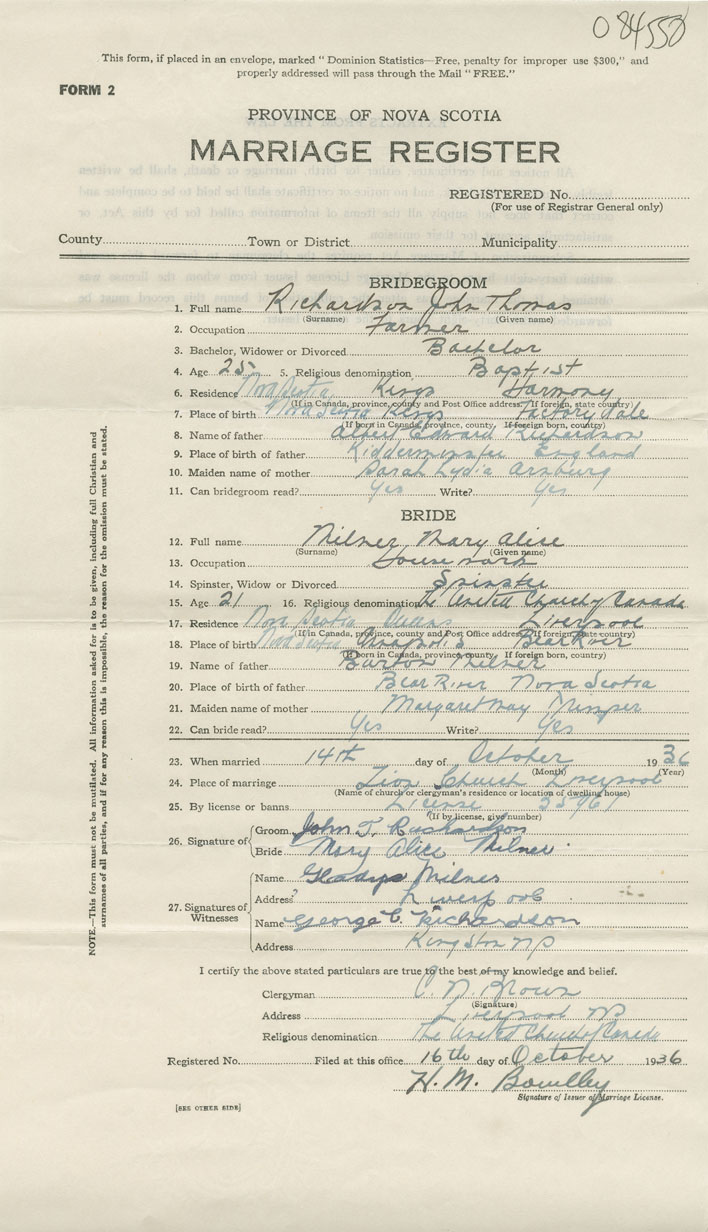 084550
This form, if placed in an envelope, marked "Dominion Statistics—Free, penalty for improper use $300," and
properly addressed will pass through the Mail "FREE."
FORM 2
PROVINCE OF NOVA SCOTIA
MARRIAGE REGISTER
REGISTERED No.
(For use of Registrar General only)
County Town or District Municipality
BRIDEGROOM
1. Full name Richardson John Thomas
(Surname) (Given name)
2. Occupation Farmer
3. Bachelor, Widower or Divorced Bachelor
4. Age 25 5. Religious denomination Baptist
6. Residence Nova Scotia Kings Harmony
(If in Canada, province, county and Post Office address. If foreign, state country)
7. Place of birth Nova Scotia Kings Factory dale
(If born in Canada, province, county. If foreign born, country)
8. Name of father Albert Edward Richardson
9. Place of birth of father Kidderminster England
10. Maiden name of mother Sarah Lydia
11. Can bridegroom read? Yes Write? Yes
BRIDE
12. Full name Milner Mary Alice
(Surname) (Given name)
13. Occupation House work
14. Spinster, Widow or Divorced Spinster
15. Age 21 16. Religious denomination The United Church of Canada
17. Residence Nova Scotia Queens Liverpool
(If in Canada, province, county and Post Office address. If foreign, state country)
18. Place of birth Nova Scotia Anapolis Bear River
(If born in Canada, province, county. If foreign born, country)
19. Name of father Burton Milner
20. Place of birth of father Bear River Nova Scotia
21. Maiden name of mother Margaret May
22. Can bride read? Yes Write? Yes
23. When married 14th day of October 1936
(Month) (Year)
24. Place of marriage Zion Church Liverpool
(Name of church or clergyman's residence or location of dwelling house)
25. By license or banns License 55961
(If by license, give number)
26. Signature of Groom John T. Richardson
Bride Mary Alice Milner.
27. Signatures of Witnesses Name Gladys Milner
Address Liverpool
Name George C. Richardson
Address Kingston NS
I certify the above stated particulars are true to the best of my knowledge and belief.
Clergyman C. D. Brown
(Signature)
Address Liverpool NS
Religious denomination The United Church of Canada
Registered No. Filed at this office 16th day of October 1936
H. M.
Signature of Issuer of Marriage License.
[SEE OTHER SIDE]
NOTE.—This form must not be mutilated. All information asked for is to be given, including full Christian and
surnames of all parties, and if for any reason this is impossible, the reason for the omission must be stated.